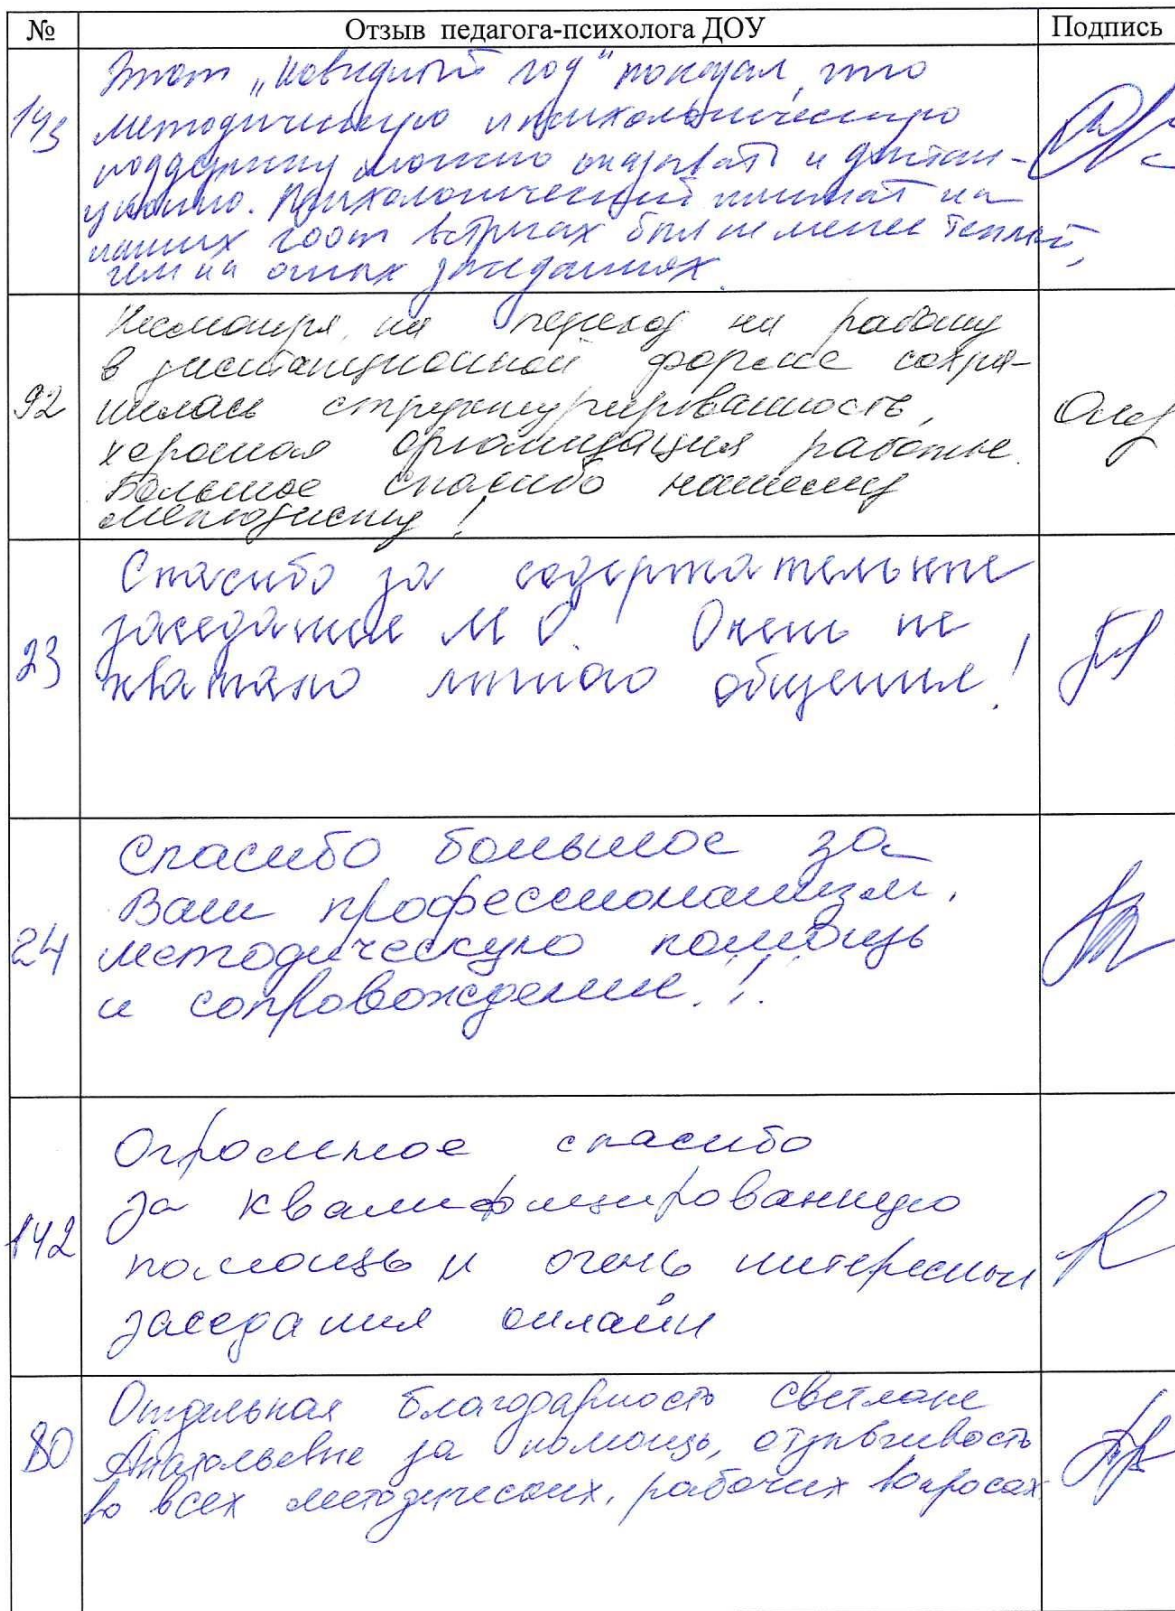 № Отзыв педагога-психолога ДОУ Подпись
143
Этот „ковидный год" показал, что
методическую и психологическую
поддержку можно оказывать и дистан-
ционно. Психологический климат на
наших zoom встречах был не менее теплый,
чем на очных заседаниях.
92
Несмотря на переход на работу
в дистанционной форме сохра-
нилась структурированность,
хорошая организация работы.
Большое спасибо нашему
методисту!
23
Спасибо за содержательные
заседание МО. Очень не
хватало личного общения!
24
Спасибо большое за
Ваш профессионализм,
методическую помощь
и сопровождение!
142
Огромное спасибо
за квалифицированную
помощь и очень интересный
заседания онлайн
80
Отдельная благодарность Светлане
Анатольевне за помощь, отзывчивость
во всех методических, рабочих вопросах